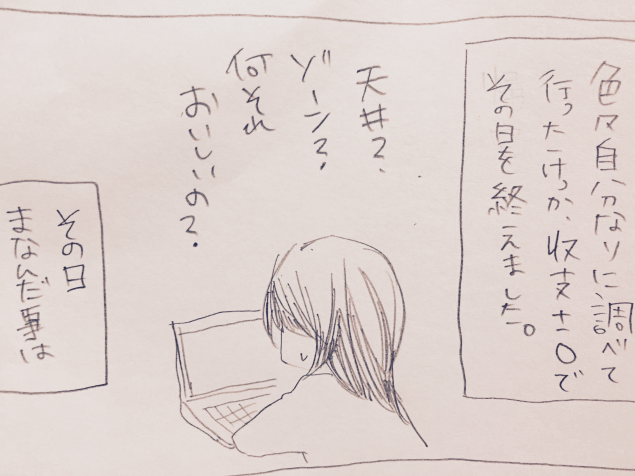 色々自分なりに、調べて
行ったけっか、収支±0で
その日を終えました。
天井?、
ゾーン?、
何それ
おいしいの?
その日
まなんだ事は